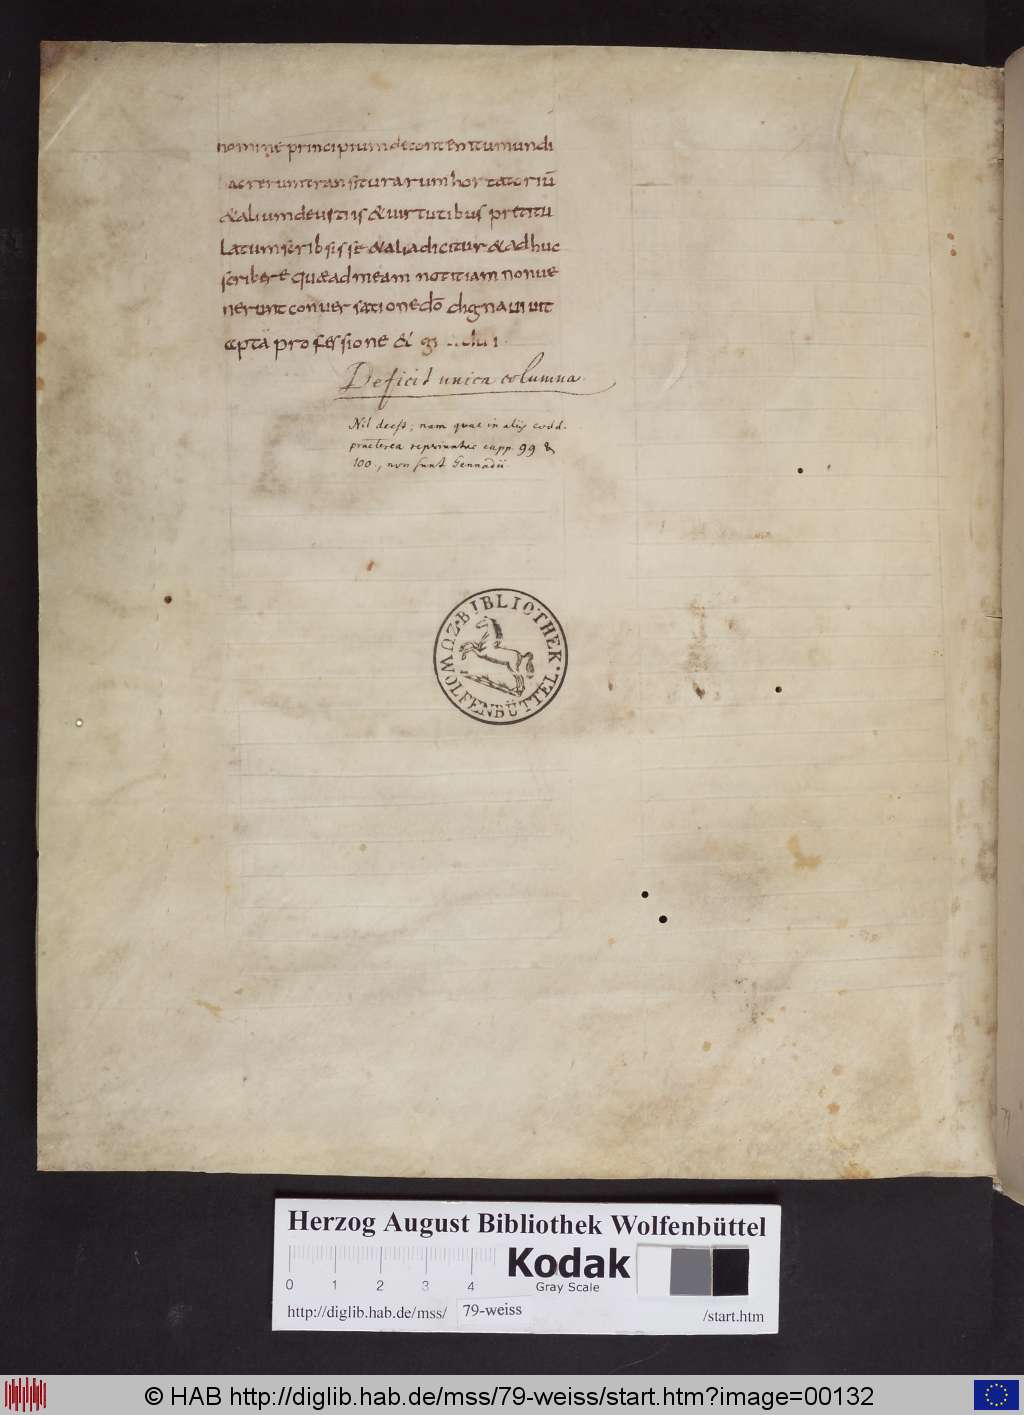 nomine principium de contentu mundi
ac rerum transiturarum hortatoriū
& alium de vitiis & virtutibus pretitu
latum scribsisse & alia dicitur & adhuc
scribere quæ ad meam notitiam non ve
nerunt conversatione dō digna vivit
apta professione & g
Deficit unica columna.
Nil deest; nam quae in aliis codd.
praeterea reperiuntur capp. 99 &
100., non sunt Gennadii.
BIBLIOTHEK.
WOLFENBÜTTEL
Herzog August Bibliothek Wolfenbüttel
0 1 2 3 4
Kodak
Gray Scale
http://diglib.hab.de/mss/ 79-weiss /start.htm
© HAB http://diglib.hab.de/mss/79-weiss/start.htm?image=00132